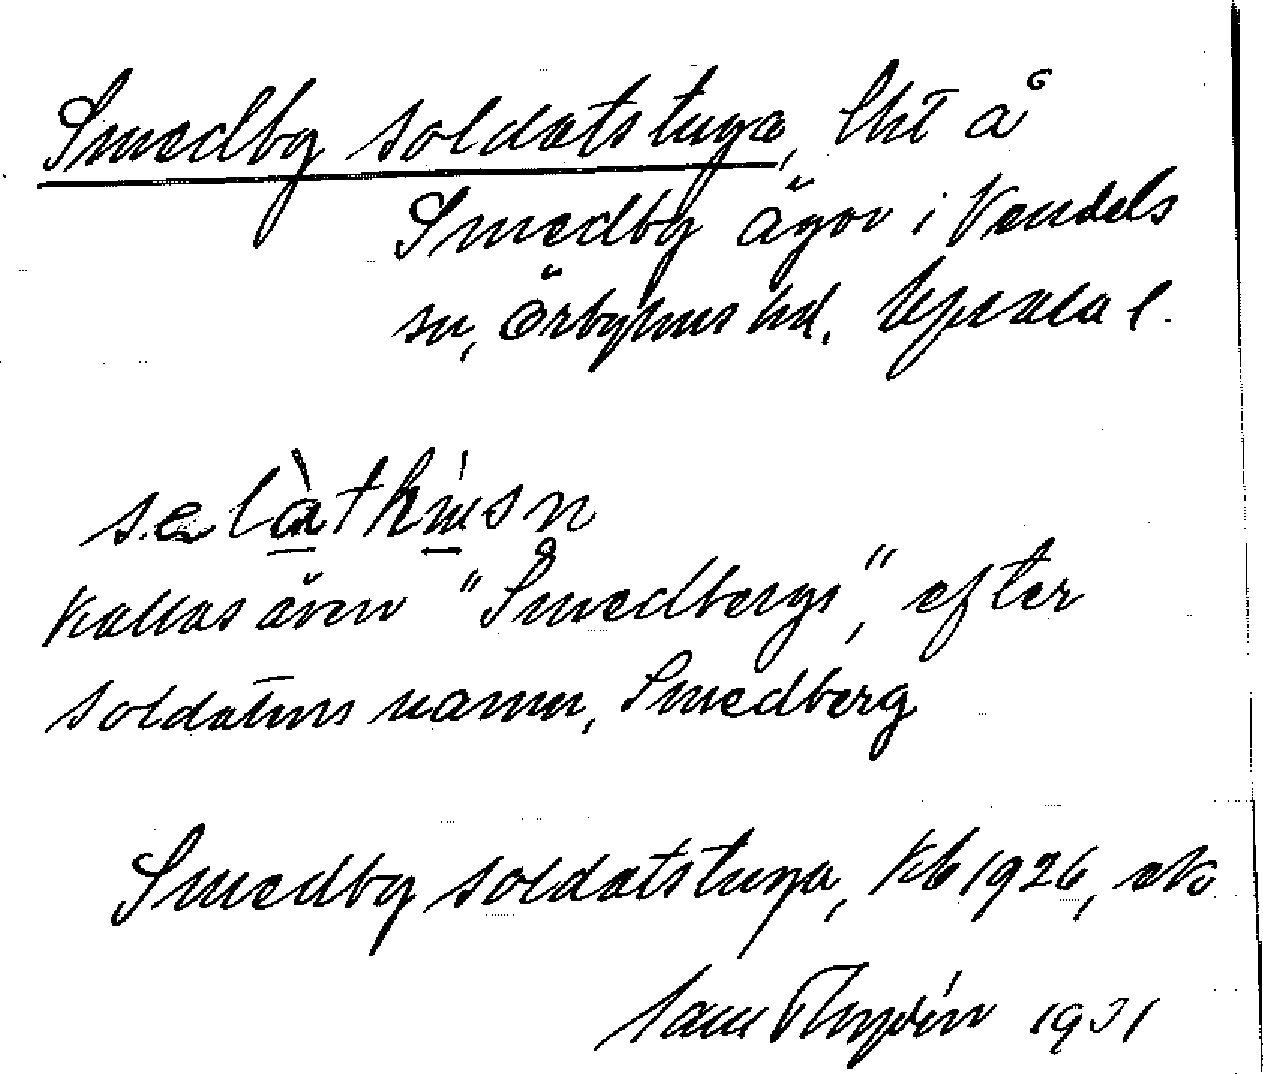 Smedby soldatstuga, lht å
Smedby ägor i Vendels
sn, Örbyhus hd. Upsala l.
Kallas även "Smedbergs", efter
soldatens namn, Smedberg
Smedby soldatstuga, Kb 1926, ek
Sam 1931